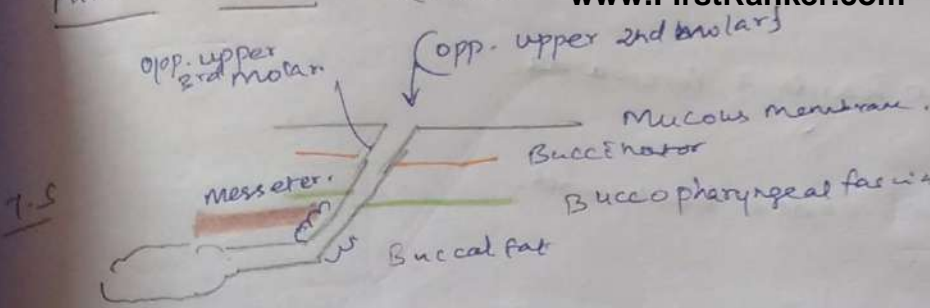 www.FirstRanker.com
Opp. upper
3rd molar.
(opp. upper 2nd molar)
Mucous menubrane.
Buccinator
Messeter.
Buccopharyngeal fascia
T.S
Buccal fat